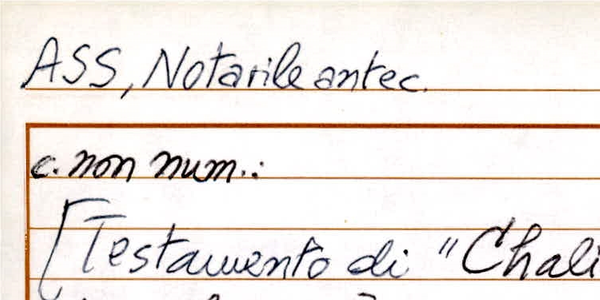 ASS, Notarile antec.
c. non num.:
[Testamento di "Chali